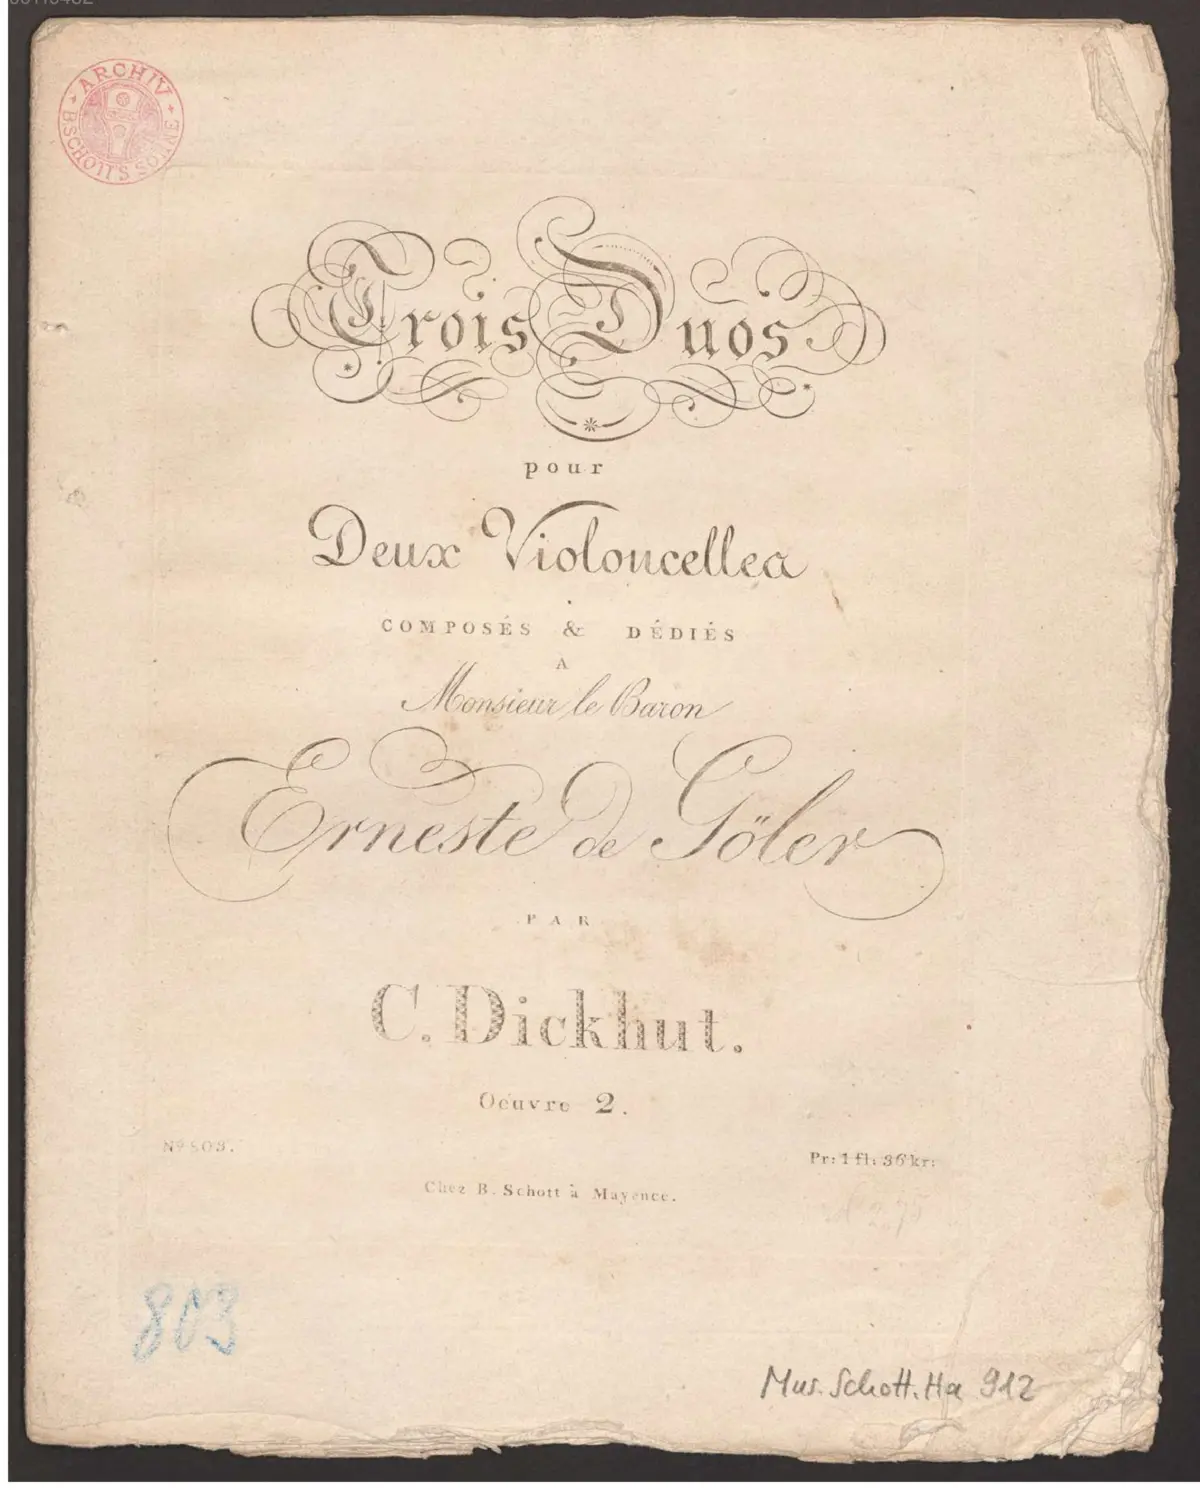 ARCHIV
B. SCHOTT'S SÖHNE
Trois Duos
pour
Deux Violoncelles
COMPOSÉS & DÉDIÉS
A
Monsieur le Baron
Erneste de Göler
PAR
C. Dickhut.
Oeuvre 2.
Pr: 1 fl: 36 kr:
Chez B. Schott à Mayence.
803
Mus. Schott. Ha 912